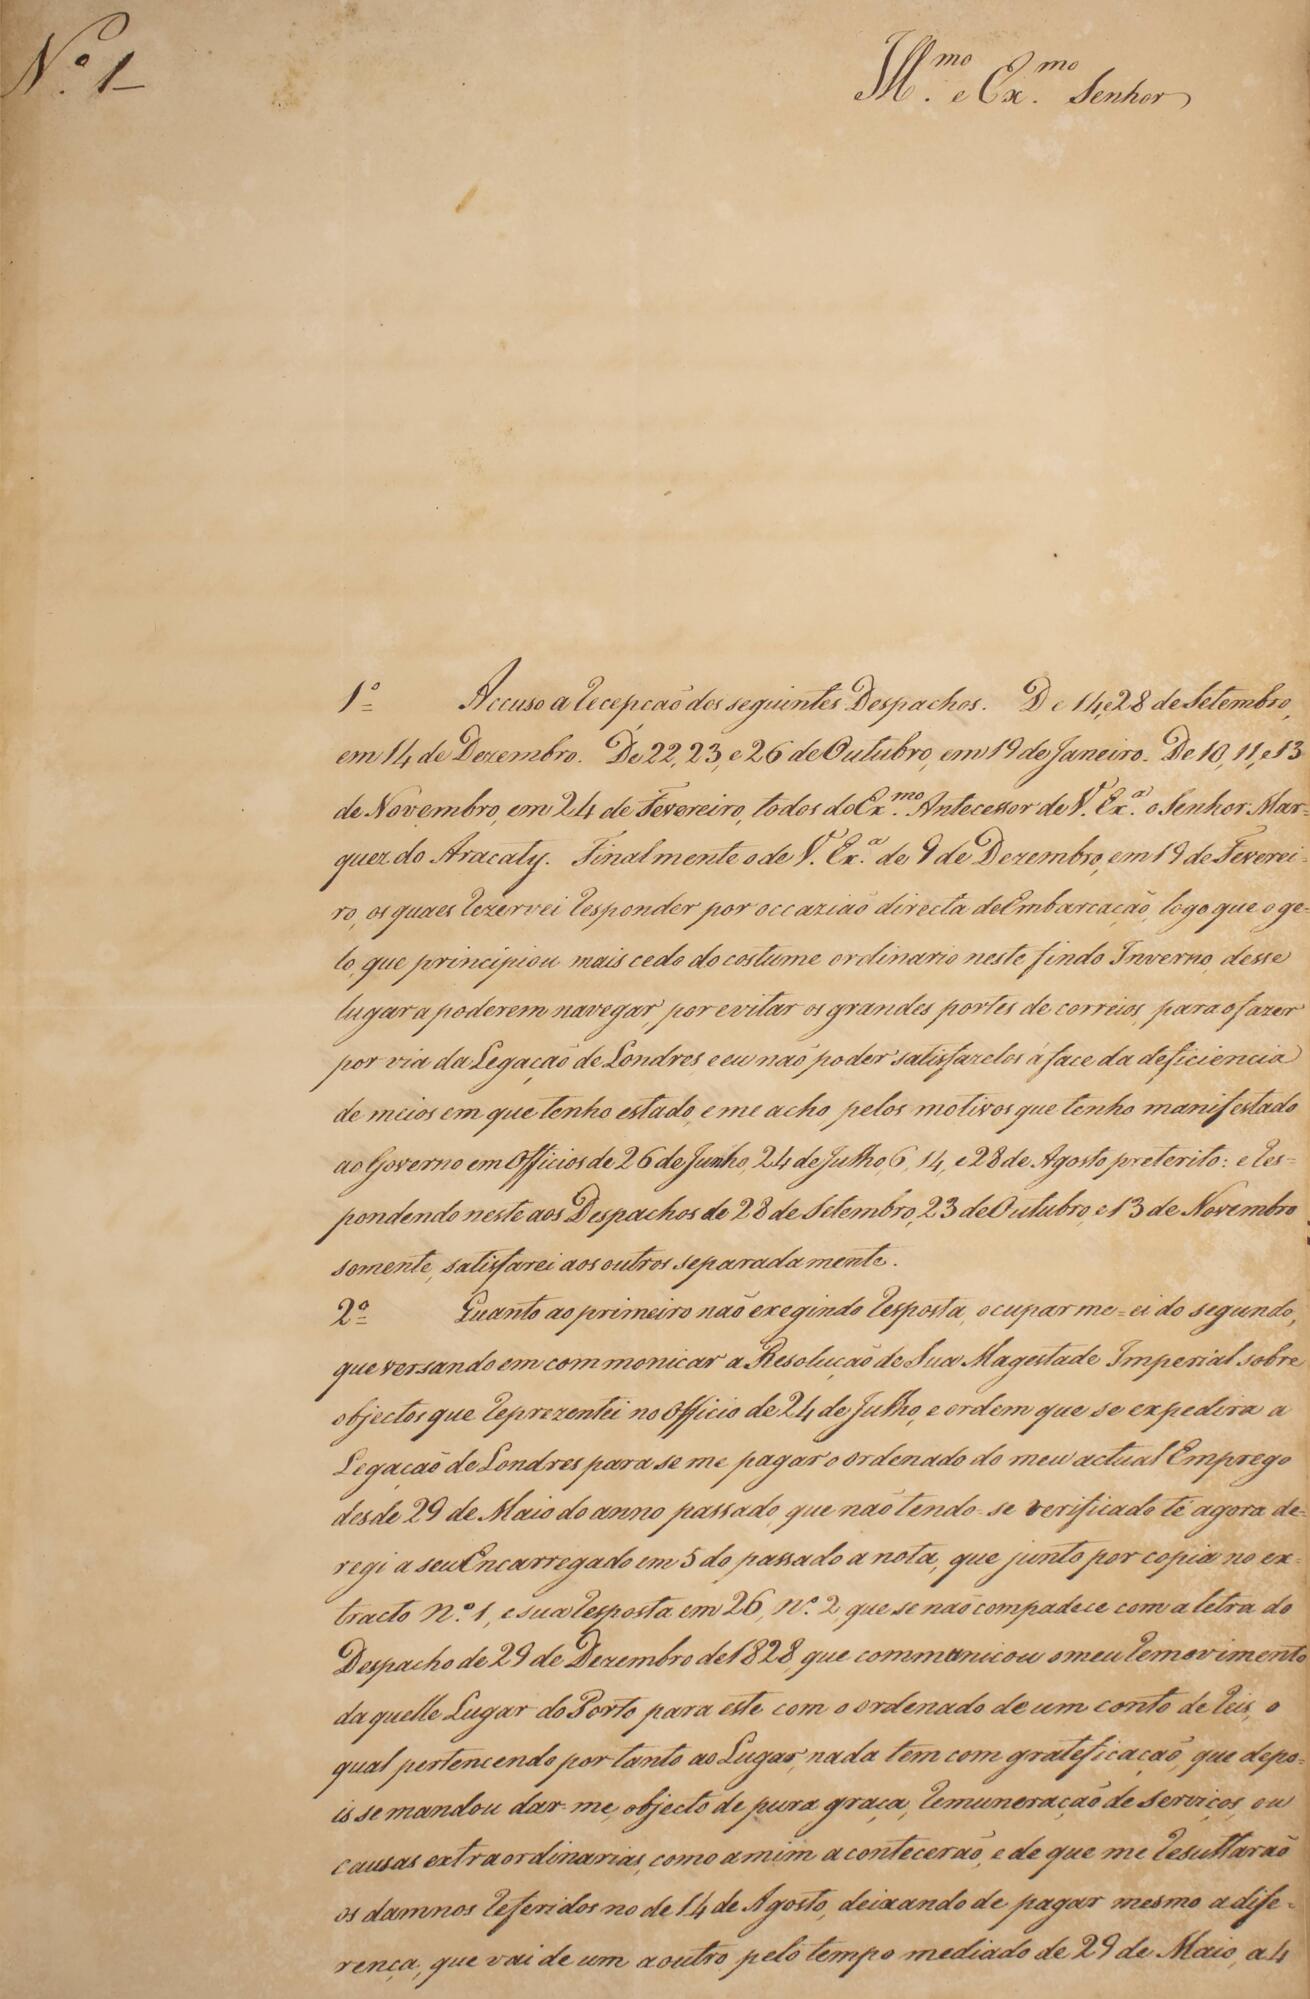 Nº. 1
Illmo. e Exmo. Senhor
1º Accuso a recepção dos seguintes Despachos. De 14, e 28 de Setembro,
em 14 de Dezembro. De 22, 23, e 26 de Outubro, em 19 de Janeiro. De 10, 11, e 13
de Novembro, em 24 de Fevereiro, todos do Exmo. Antecessor de V. Exa. o Senhor Mar=
quez do Aracaty. Finalmente o de V. Exa. de 9 de Dezembro, em 19 de Feverei=
ro, os quaes rezervei responder por occazião directa de Embarcação, logo que o ge=
lo, que principiou mais cedo do costume ordinario neste findo Inverno, desse
lugar a poderem navegar, por evitar os grandes portes de correios, para o fazer
por via da Legação de Londres, e eu não poder satisfazelos á face da deficiencia
de meios em que tenho estado, e me acho, pelos motivos que tenho manifestado
ao Governo em Officios de 26 de Junho, 24 de Julho, 6, 14, e 28 de Agosto preterito: e res=
pondendo neste aos Despachos de 28 de Setembro, 23 de Outubro, e 13 de Novembro
somente, satisfarei aos outros separadamente.
2º Quanto ao primeiro não exegindo resposta, ocupar me=ei do segundo,
que versando em commonicar a Resolução de Sua Magestade Imperial sobre
objectos que reprezentei no Officio de 24 de Julho, e ordem que se expedira a
Legação de Londres para se me pagar o ordenado do meu actual Emprego
desde 29 de Maio do anno passado, que não tendo-se verificado té agora de=
regi a seu Encarregado em 5 do passado a nota, que junto por copia no ex=
tracto Nº. 1, e sua resposta em 26, Nº. 2, que se não compadece com a letra do
Despacho de 29 de Dezembro de 1828, que communicou o meu removimento
da quelle Lugar do Porto para este com o ordenado de um conto de reis, o
qual pertencendo por tanto ao Lugar, nada tem com grateficação, que depo=
is se mandou dar-me, objecto de pura graça, remuneração de serviços, ou
causas extraordinarias, como a mim acontecerão, e de que me resultarão
os damnos referidos no de 14 de Agosto, deixando de pagar mesmo a dife=
rença, que vai de um a outro, pelo tempo mediado de 29 de Maio, a 4